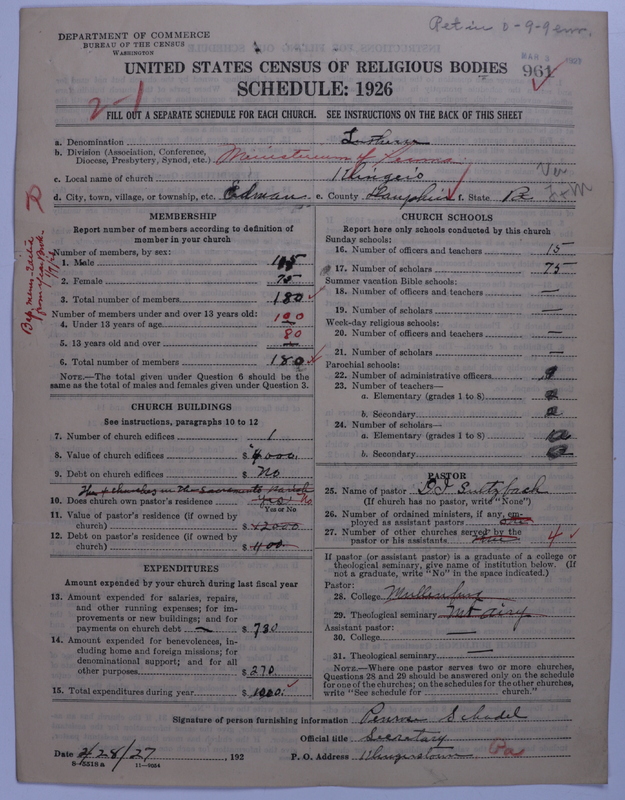 DEPARTMENT OF COMMERCE
BUREAU OF THE CENSUS
WASHINGTON
UNITED STATES CENSUS OF RELIGIOUS BODIES
961
SCHEDULE: 1926
2-1
FILL OUT A SEPARATE SCHEDULE FOR EACH CHURCH. SEE INSTRUCTIONS ON THE BACK OF THIS SHEET
a. Denomination Lutheran
b. Division (Association, Conference, Diocese, Presbytery, Synod, etc.) Ministerium of Penna.
c. Local name of church Klinger's
d. City, town, village, or township, etc. Erdman e. County Dauphin f. State Pa
MEMBERSHIP
Report number of members according to definition of
member in your church
Number of members, by sex:
1. Male 105
2. Female 75
3. Total number of members 180
Number of members under and over 13 years old:
4. Under 13 years of age 100
5. 13 years old and over 80
6. Total number of members 180
NOTE.—The total given under Question 6 should be the
same as the total of males and females given under Question 3.
CHURCH BUILDINGS
See instructions, paragraphs 10 to 12
7. Number of church edifices 1
8. Value of church edifices $ 4000.
9. Debt on church edifices $ No
The 4 churches in the Sacramento Parish
10. Does church own pastor's residence Yes No
Yes or No
11. Value of pastor's residence (if owned by
church) $ 2000
12. Debt on pastor's residence (if owned by
church) $ 400
EXPENDITURES
Amount expended by your church during last fiscal year
13. Amount expended for salaries, repairs,
and other running expenses; for im-
provements or new buildings; and for
payments on church debt $ 730
14. Amount expended for benevolences, in-
cluding home and foreign missions; for
denominational support; and for all
other purposes $ 270
15. Total expenditures during year $ 1000.
CHURCH SCHOOLS
Report here only schools conducted by this church
Sunday schools:
16. Number of officers and teachers 15
17. Number of scholars 75
Summer vacation Bible schools:
18. Number of officers and teachers —
19. Number of scholars —
Week-day religious schools:
20. Number of officers and teachers —
21. Number of scholars —
Parochial schools:
22. Number of administrative officers
23. Number of teachers—
a. Elementary (grades 1 to 8)
b. Secondary
24. Number of scholars—
a. Elementary (grades 1 to 8)
b. Secondary
PASTOR
25. Name of pastor
(If church has no pastor, write "None")
26. Number of ordained ministers, if any, em-
ployed as assistant pastors
27. Number of other churches served by the
pastor or his assistants 4
If pastor (or assistant pastor) is a graduate of a college or
theological seminary, give name of institution below. (If
not a graduate, write "No" in the space indicated.)
Pastor:
28. College
29. Theological seminary Mt Airy
Assistant pastor:
30. College —
31. Theological seminary —
NOTE.—Where one pastor serves two or more churches,
Questions 28 and 29 should be answered only on the schedule
for one of the churches; on the schedules for the other churches,
write "See schedule for church."
Signature of person furnishing information Penrose Schadel
Official title Secretary
Date 2/28/27, 192 P. O. Address Klingerstown Pa
8-5518a 11-9054